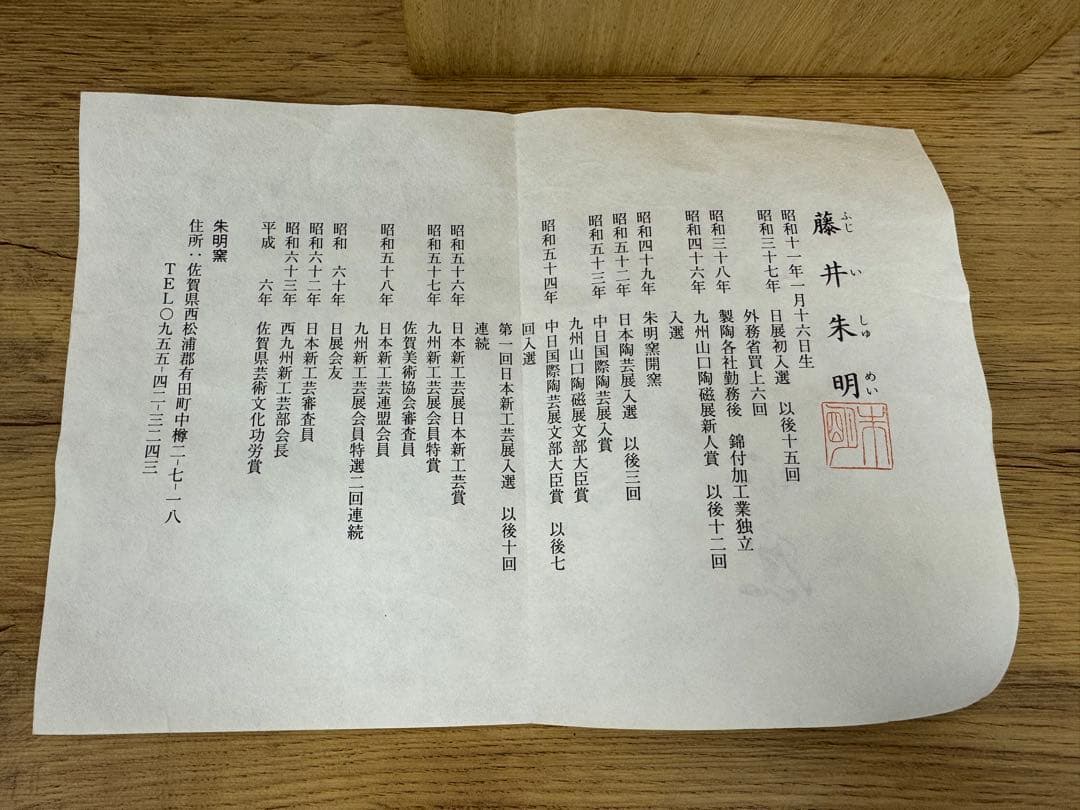 藤井朱明
ふじいしゅめい
朱明
昭和十一年一月十六日生
昭和三十七年 日展初入選 以後十五回
外務省買上六回
昭和三十八年 製陶各社勤務後 錦付加工業独立
昭和四十六年 九州山口陶磁展新人賞 以後十二回
入選
昭和四十九年 朱明窯開窯
昭和五十二年 日本陶芸展入選 以後三回
昭和五十三年 中日国際陶芸展入賞
九州山口陶磁展文部大臣賞
昭和五十四年 中日国際陶芸展文部大臣賞 以後七
回入選
第一回日本新工芸展入選 以後十回
連続
昭和五十六年 日本新工芸展日本新工芸賞
昭和五十七年 九州新工芸展会員特賞
佐賀美術協会審査員
昭和五十八年 日本新工芸連盟会員
九州新工芸展会員特選二回連続
昭和 六十年 日展会友
昭和六十二年 日本新工芸審査員
昭和六十三年 西九州新工芸部会長
平成 六年 佐賀県芸術文化功労賞
朱明窯
住所:佐賀県西松浦郡有田町中樽二-七-一八
TEL〇九五五-四二-三二四三